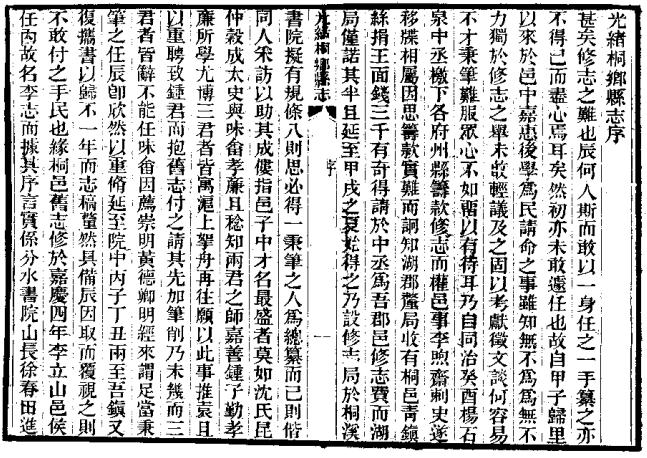 光緒桐鄉縣志序
甚矣修志之難也辰何人斯而敢以一身任之一手纂之亦
不得已而盡心焉耳矣然初亦未敢遽任也故自甲子歸里
以來於邑中嘉惠後學為民請命之事雖知無不為為無不
力獨於修志之舉未敢輕議及之固以考獻徵文談何容易
不才秉筆難服眾心不如留以有待耳乃自同治癸酉楊石
泉中丞檄下各府州縣籌款修志而權邑事李煦齋刺史遂
移牒相屬因思籌款實難而詗知湖郡釐局收有桐邑青鎮
絲捐王面錢三千有奇得請於中丞為吾郡邑修志費而湖
局僅諾其半且延至甲戌之夏始得之乃設修志局於桐溪
光緒桐鄉縣志
序
一
書院擬有規條八則思必得一秉筆之人為總纂而己則偕
同人釆訪以助其成僂指邑子中才名最盛者莫如沈氏昆
仲穀成太史與味畬孝廉且稔知兩君之師嘉善鍾子勤孝
廉所學尤博三君者皆寓滬上拏舟再往願以此事推袁且
以重聘致鍾君而抱舊志付之請其先加筆削乃未幾而三
君者皆辭不能任味畬因薦崇明黃德卿明經來謂足當秉
筆之任辰卽欣然以重脩延至院中丙子丁丑兩至吾鎮又
復攜書以歸不一年而志稿蕆然具備辰因取而覆視之則
不敢付之手民也緣桐邑舊志修於嘉慶四年李立山邑侯
任內故名李志而據其序言實係分水書院山長徐春田進